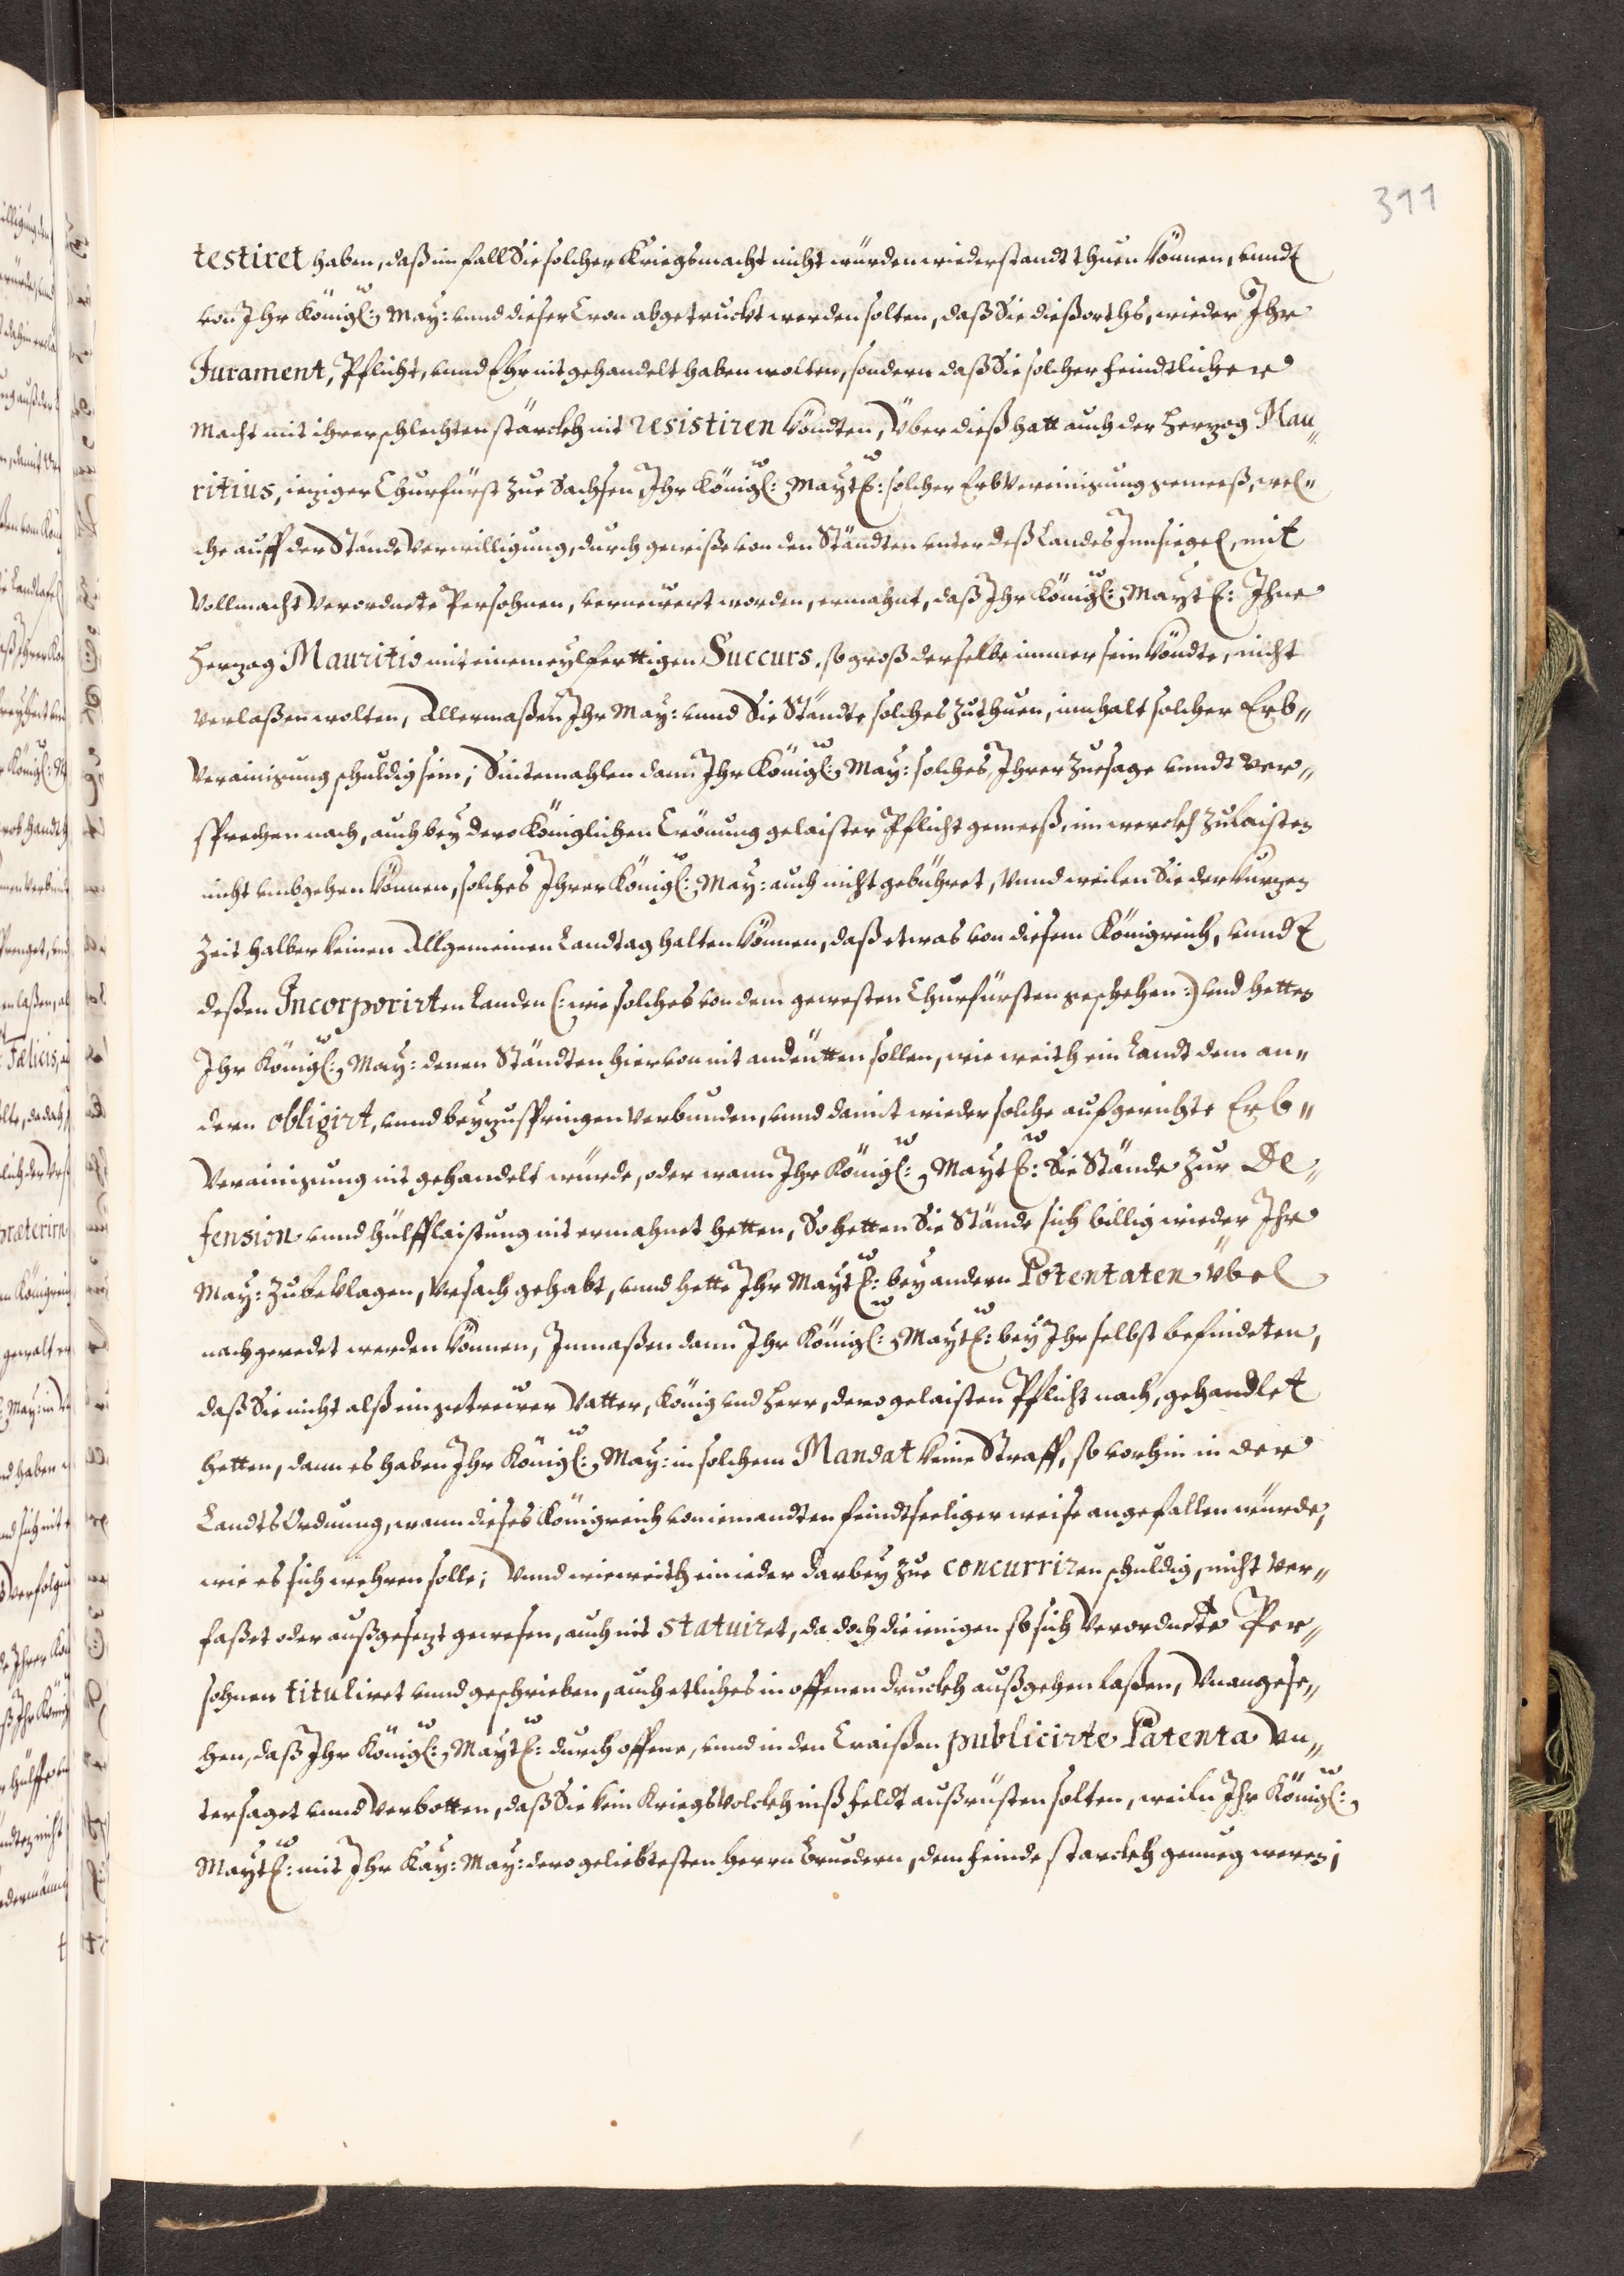 311
testiret haben, daß im fall Sie solcher Kriegsmacht nicht würden wiederstandt thuen können, vnndt
von Ihr Königl: May: vnnd dieser Cron abgetruckt werden solten, daß Sie dießorths, wieder Ihr
Jurament, Pflicht, vnnd Ehr nit gehandelt haben wolten, sondern daß Sie solcher feindtlicher
Macht mit ihrer schlechten stärckh nit resistiren köndten, Über dieß hatt auch der Herzog Mau„
ritius, ieziger Churfürst zue Sachsen Ihr Königl: Maytt: solcher ErbVereinigung gemeeß, wel„
che auff der Stände Verwilligung, durch gewiße von den Ständten vnter deß Landes Innsiegel, mit
Vollmacht Verordnete Persohnen, vernewert worden, ermahnt, daß Ihr Königl: Maytt: Ihne
Herzog Mauritio mit einem eylferttigen Succurs, so groß derselbe immer sein köndte, nicht
verlaßen wolten, Allermaßen Ihr May: vnnd Sie Stände solches zuthuen, innhalt solcher Erb„
Verainigung schuldig sein; Sintemahlen dann Ihr Königl: May: solches, Ihrer Zuesage vnndt Ver„
sprechen nach, auch bey dero Königlichen Crönung gelaister Pflicht gemeeß, im werckh zulaisten
nicht vmbgehen können, solches Ihrer Königl: May: auch nicht gebühret, Vnnd weilen Sie der kurzen
Zeit halber keinen Allgemeinen Landtag halten können, daß etwas von diesem Königreich, vnndt
deßen Incorporirten Landen (: wie solches von dem gewesten Churfürsten geschehen :) vnd hetten
Ihr Königl: May: denen Ständten hiervon nit andeütten sollen, wie weith ein Landt dem an„
dern obligirt, vnnd beyzuspringen Verbunden, vnnd damit wieder solche aufgerichte Erb„
Verainigung nit gehandelt würde, oder wann Ihr Königl: Maytt: Sie Stände zur De„
fension vnnd hülfflaistung nit ermahnet hetten, So hetten Sie Stände sich billig wieder Ihr
May: zubeklagen, Vrsach gehabt, vnnd hette Ihr Maytt: bey andern Potentaten übel
nachgeredet werden können, Inmaßen dann Ihr Königl: Maytt: bey Ihr selbst befindeten,
daß Sie nicht alß ein getreüer Vatter, König vnd Herr, dero gelaisten Pflicht nach, gehandlet
hetten, dann es haben Ihr Königl: May: in solchem Mandat keine Straff, so vorhin in der
LandtsOrdnung, wann dieses Königreich von iemandten feindtseeliger weise angefallen würde,
wie es sich wehren solle; Vnnd wie weith ein ieder darbey zue concurriren schuldig, nicht Ver„
faßet oder außgesezt gewesen, auch nit statuiret, da doch die ienigen so sich Verordnete Per„
sohnen tituliret vnnd geschrieben, auch etliches in offenen druckh außgehen laßen, Vnangese„
hen, daß Ihr Königl: Maytt: durch offene, vnnd in den Craißen publicirte Patenta Vn„
tersaget vnnd Verbotten, daß Sie kein Kriegsvolckh inß feldt außrüsten solten, weiln Ihr Königl:
Maytt: mit Ihr Kay: May: dero geliebtesten Herrn Bruedern, dem feinde starckh genueg weren;